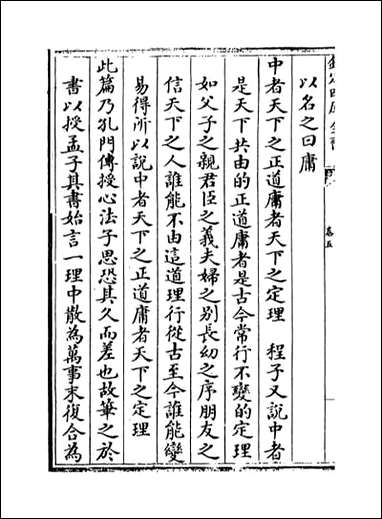 欽定四庫全書
卷五
以名之曰庸
中者天下之正道庸者天下之定理　程子又說中者
是天下共由的正道庸者是古今常行不變的定理
如父子之親君臣之義夫婦之别長幼之序朋友之
信天下之人誰能不由這道理行從古至今誰能變
易得所以說中者天下之正道庸者天下之定理
此篇乃孔門傳授心法子思恐其久而差也故筆之於
書以授孟子其書始言一理中散為萬事末復合為